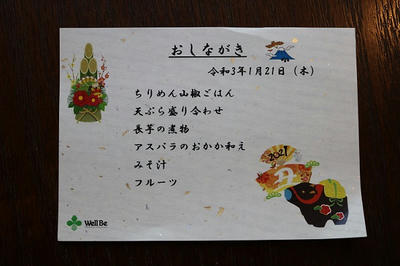 おしながき
令和3年1月21日（木）
ちりめん山椒ごはん
天ぷら盛り合わせ
長芋の煮物
アスパラのおかか和え
みそ汁
フルーツ
2021
丑
WellBe